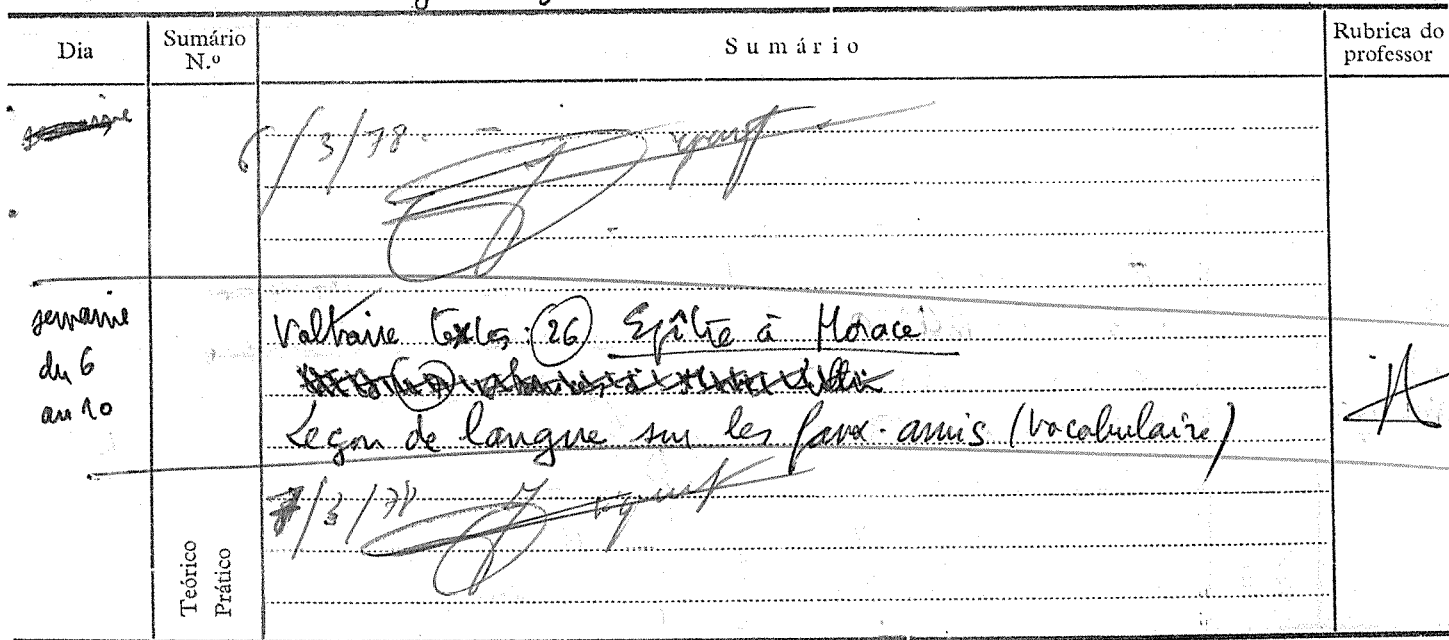 Dia
Sumário N.º
Sumário
Rubrica do professor
6/3/78
semaine du 6 au 10
Voltaire textes : (26) Epître à Horace
Leçon de langue sur les faux-amis (vocabulaire)
7/3/78
Teórico
Prático